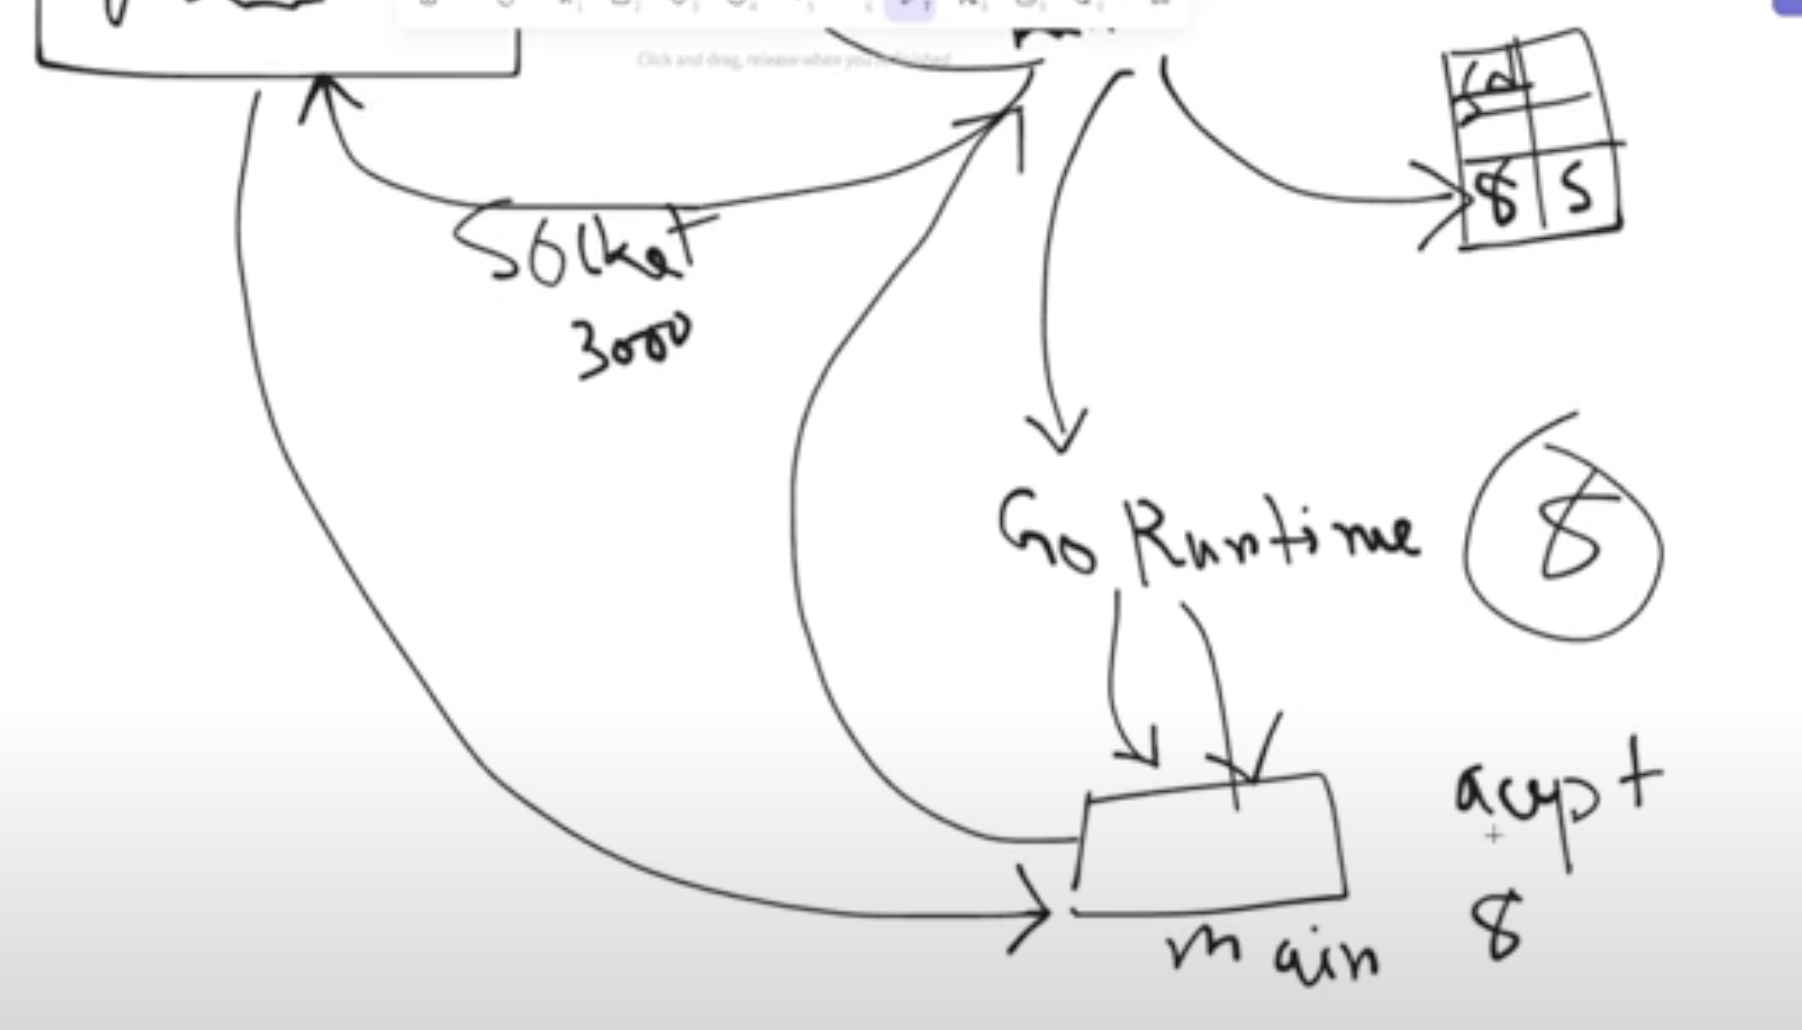 Click and drag, release when you're finished
fd
8 S
Socket
3000
Go Runtime 8
accept
8
main